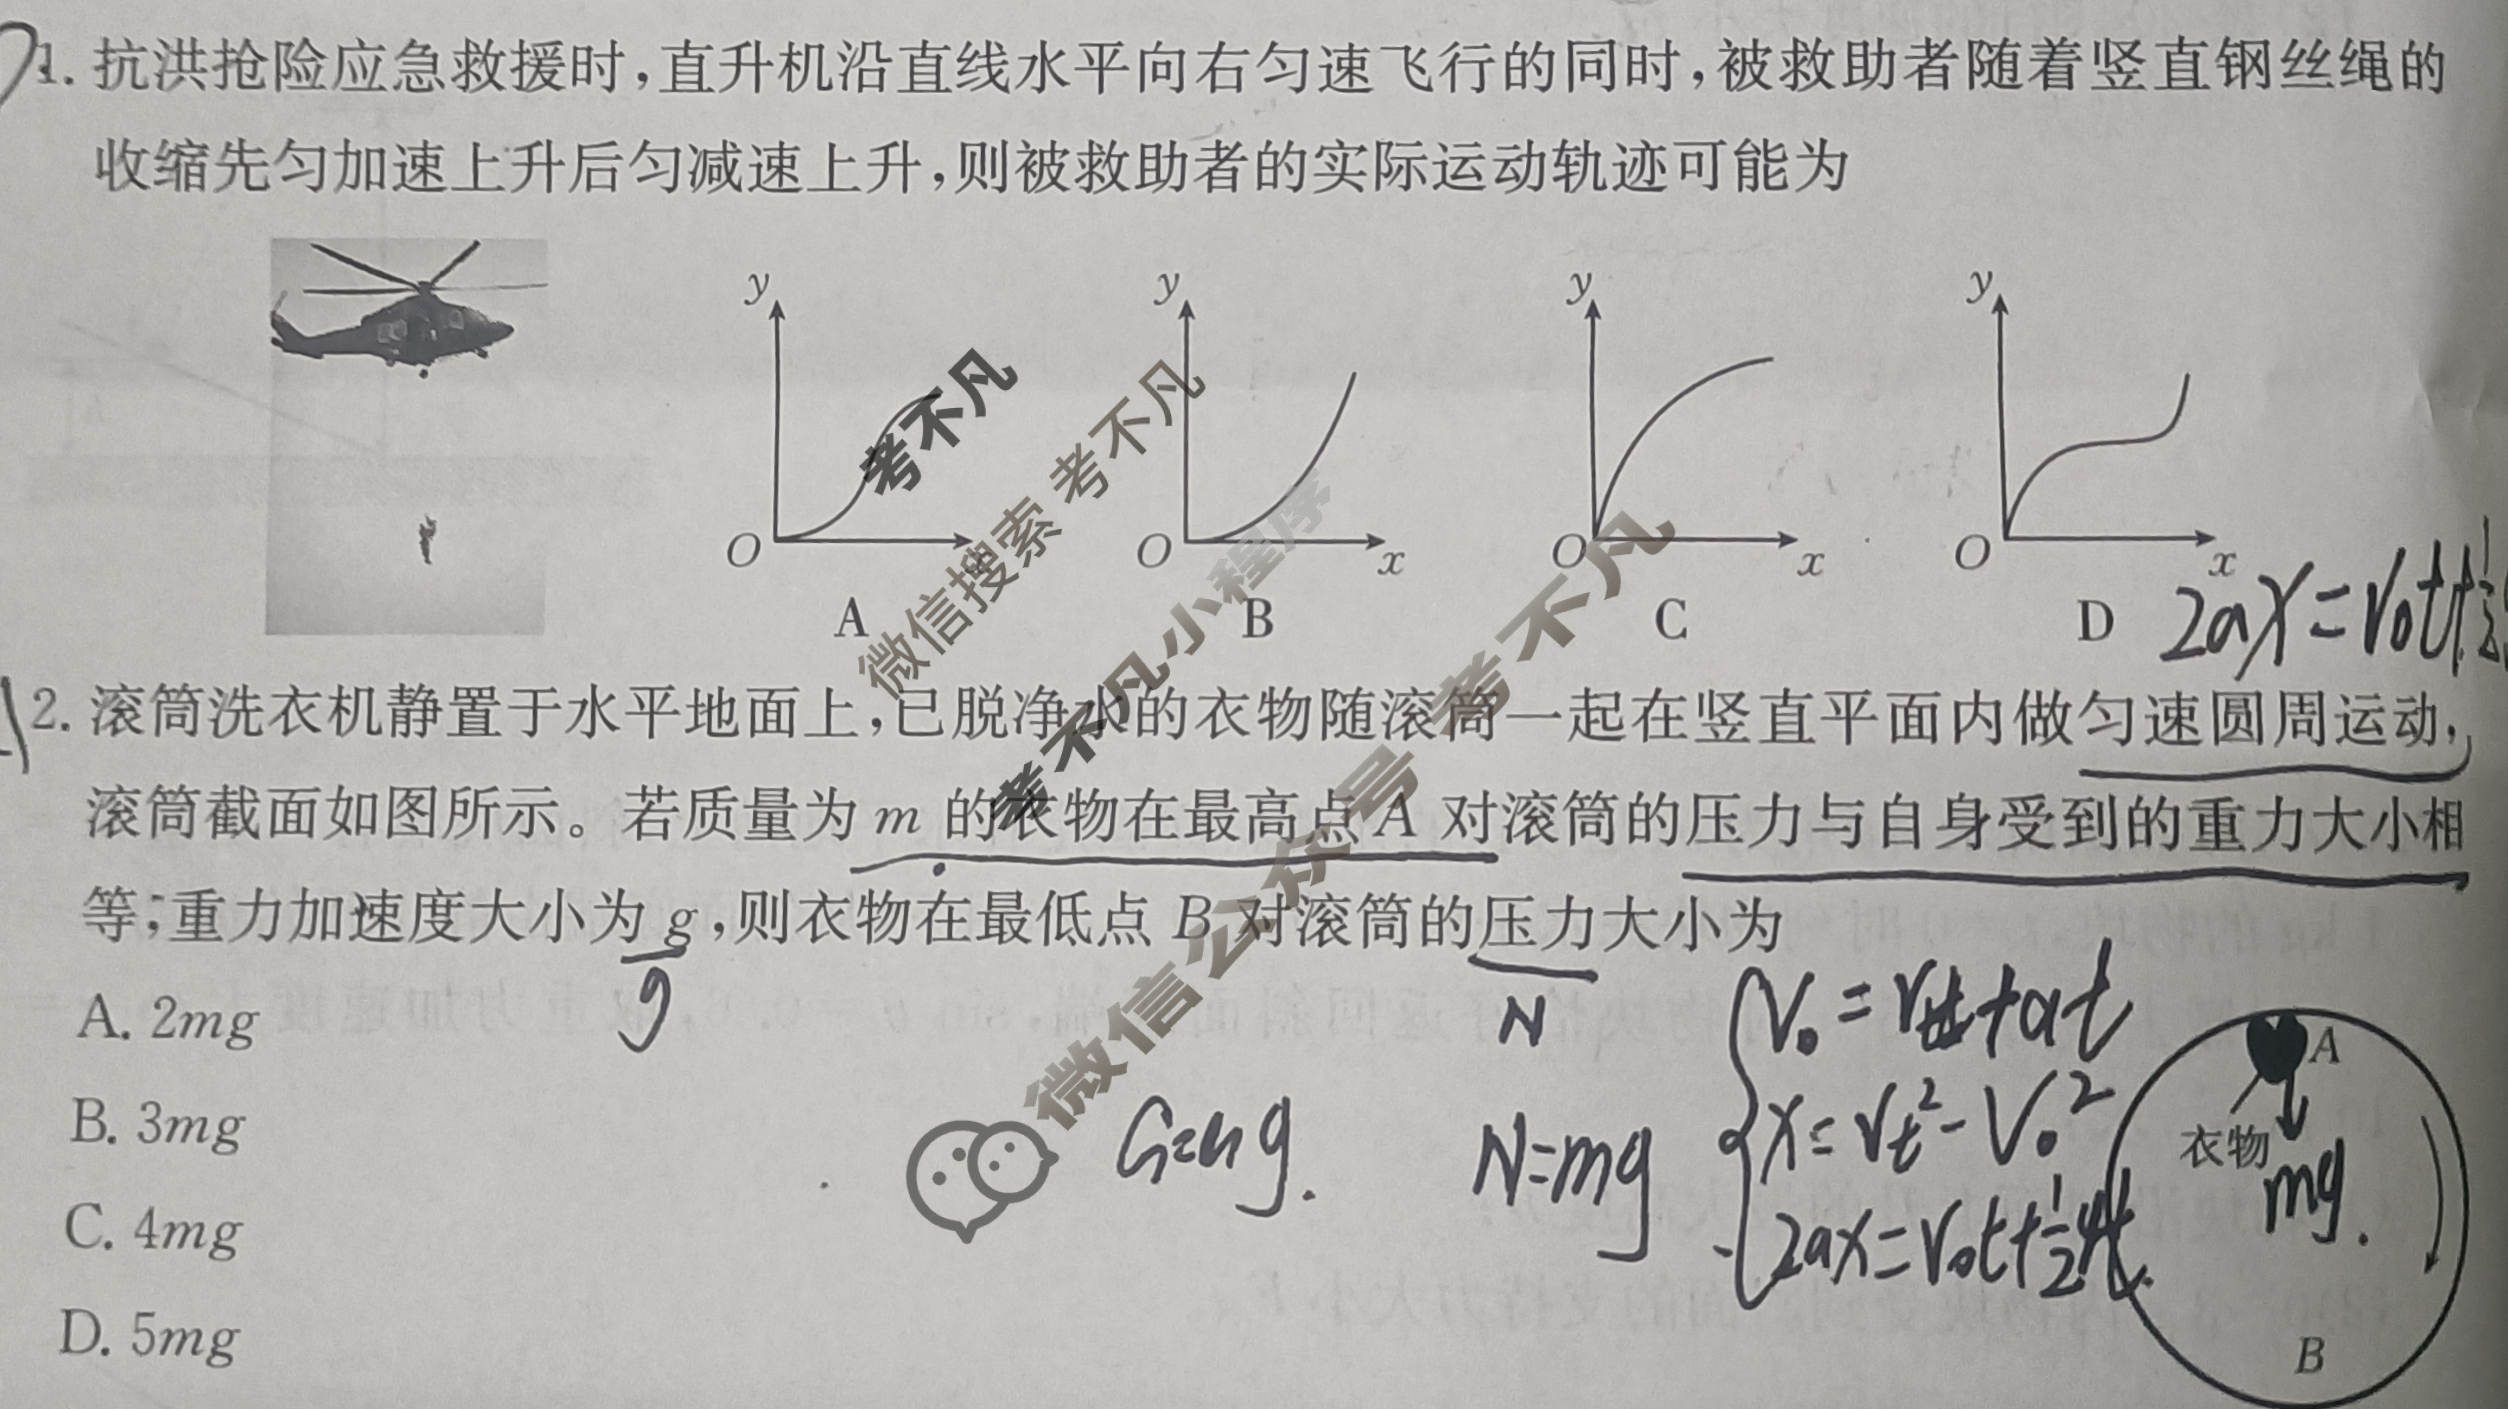 1. 抗洪抢险应急救援时,直升机沿直线水平向右匀速飞行的同时,被救助者随着竖直钢丝绳的
收缩先匀加速上升后匀减速上升,则被救助者的实际运动轨迹可能为
y y y y
O O x O x O x
A B C D
2ax=V₀t+½
2. 滚筒洗衣机静置于水平地面上,已脱净水的衣物随滚筒一起在竖直平面内做匀速圆周运动,
滚筒截面如图所示。若质量为 m 的衣物在最高点 A 对滚筒的压力与自身受到的重力大小相
等;重力加速度大小为 g,则衣物在最低点 B 对滚筒的压力大小为
g
N
A. 2mg
B. 3mg
C. 4mg
D. 5mg
N=mg
x=Vt²-V₀²
A
衣物
mg.
B
考不凡
微信搜索 考不凡
考不凡小程序
微信公众号 考不凡